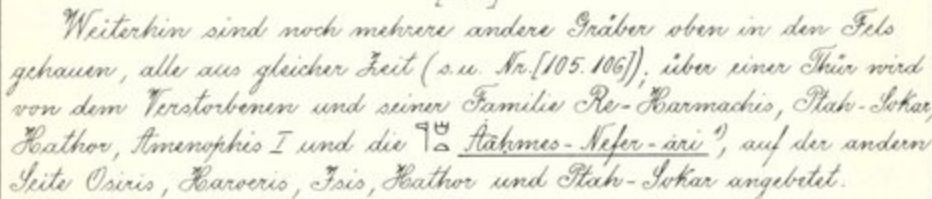 Weiterhin sind noch mehrere andere Gräber oben in den Fels
gehauen, alle aus gleicher Zeit (s.u. Nr.[105.106]); über einer Thür wird
von dem Verstorbenen und seiner Familie Re-Harmachis, Ptah-Sokar,
Hathor, Amenophis I und die Āāḥmes-Nefer-āri ¹), auf der andern
Seite Osiris, Haroeris, Isis, Hathor und Ptah-Sokar angebetet.